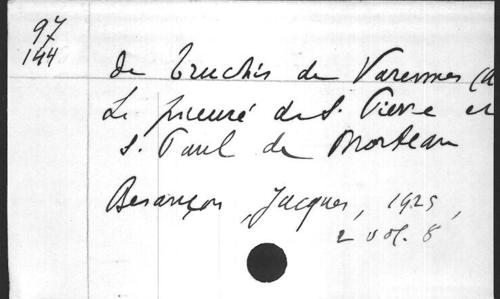 97
144
de Truchis de Varennes (
Le prieuré de S. Pierre et
S. Paul de Morteau
Besançon, Jacques, 1925,
2 vol. 8°